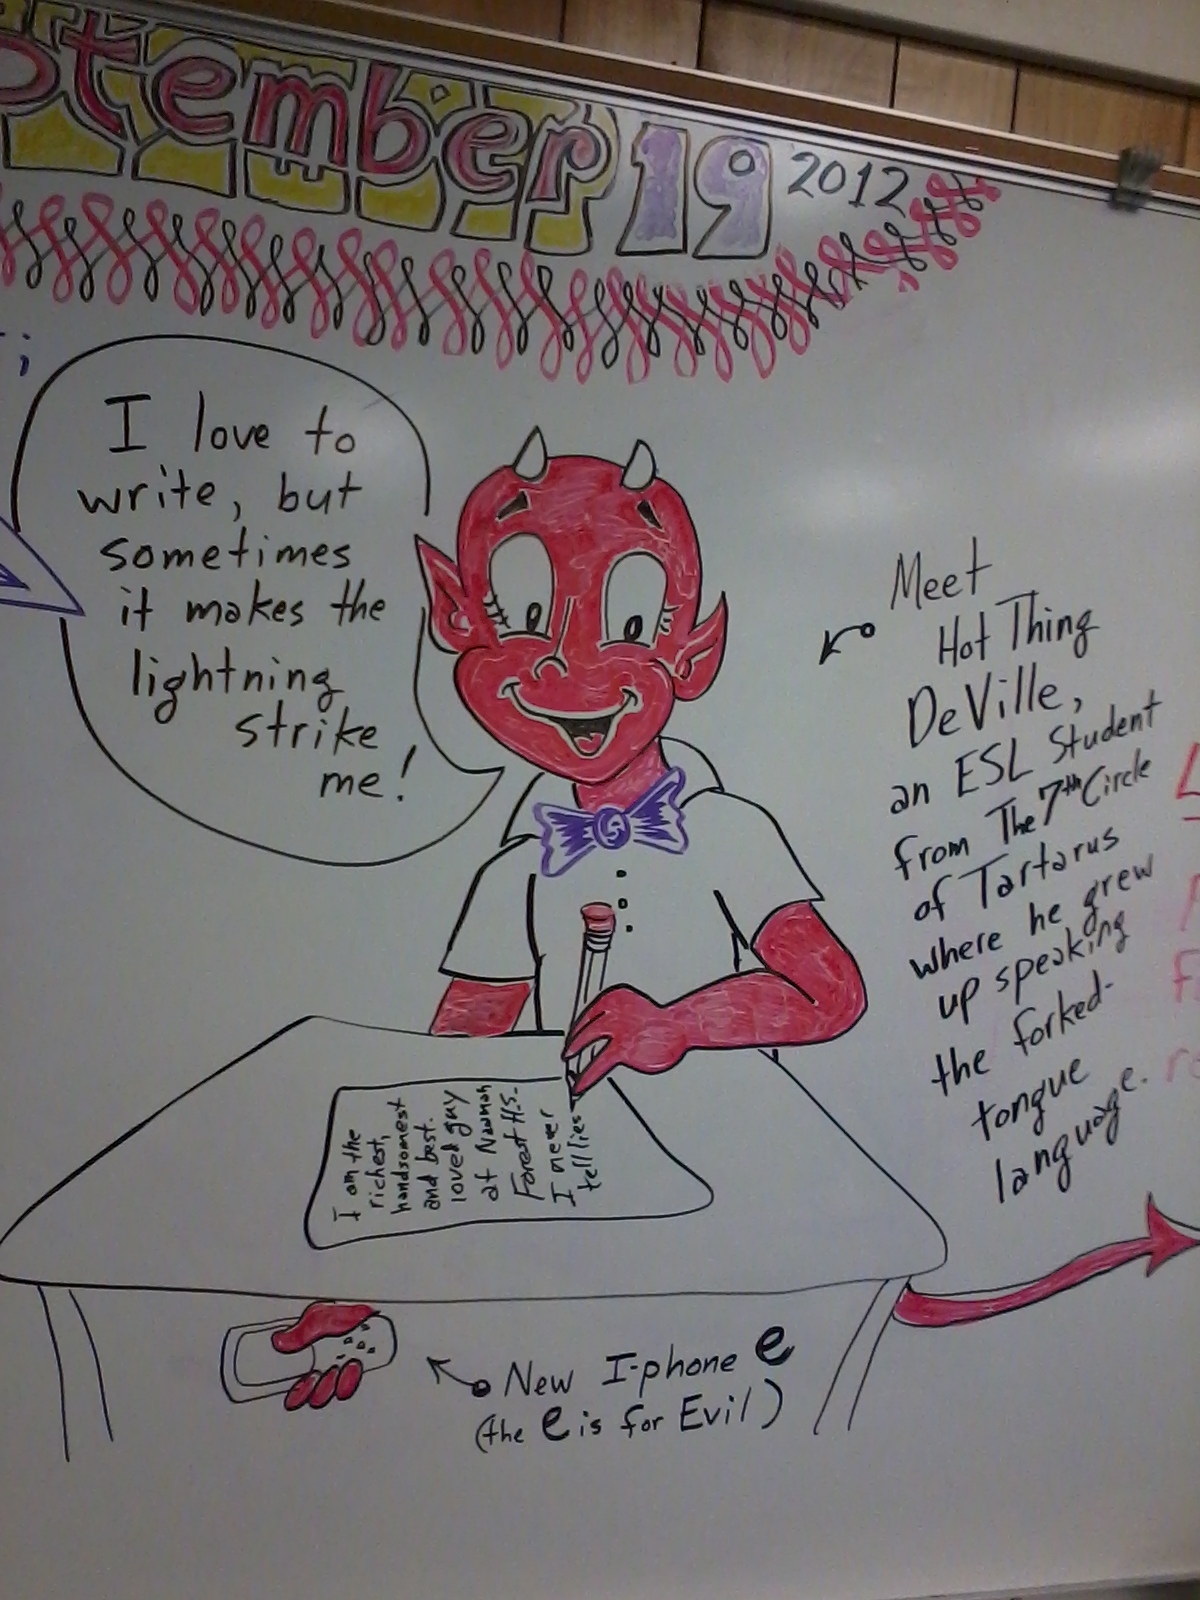 ptember 19 2012
I love to
write, but
sometimes
it makes the
lightning
strike
me!
Meet
Hot Thing
DeVille,
an ESL Student
from The 7th Circle
of Tartarus
where he grew
up speaking
the forked-
tongue
language.
I am the
richest,
handsomest
and best.
loved guy
at
Forest H.S.
I never
tell lies
New I-phone e
(the e is for Evil)